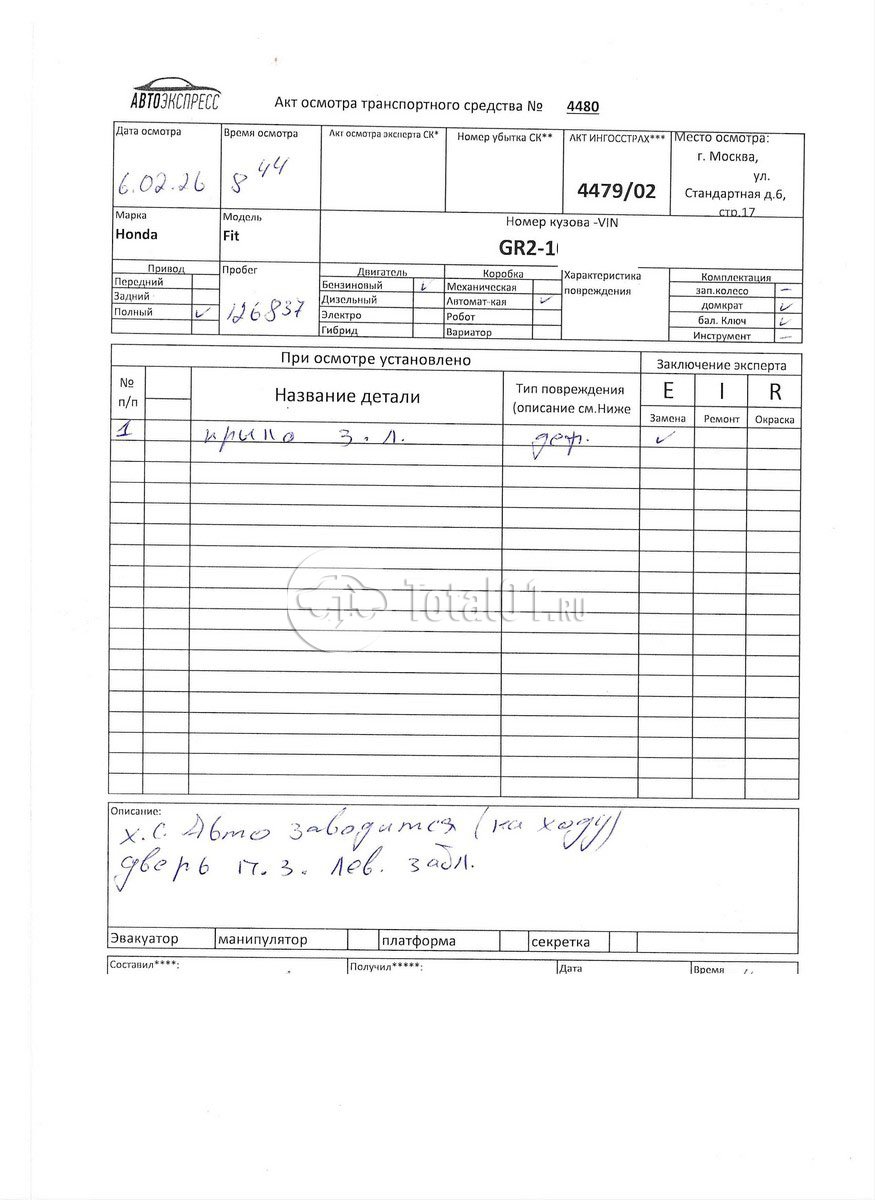 АВТОЭКСПРЕСС
Акт осмотра транспортного средства № 4480
Дата осмотра
6.02.26
Время осмотра
8 44
Акт осмотра эксперта СК*
Номер убытка СК**
АКТ ИНГОССТРАХ***
4479/02
Место осмотра:
г. Москва,
ул.
Стандартная д.6,
стр.17
Марка
Honda
Модель
Fit
Номер кузова -VIN
GR2-1
Привод
Передний
Задний
Полный ✓
Пробег
126837
Двигатель
Бензиновый ✓
Дизельный
Электро
Гибрид
Коробка
Механическая
Автомат-кая ✓
Робот
Вариатор
Характеристика
повреждения
Комплектация
зап.колесо –
домкрат ✓
бал. Ключ ✓
Инструмент –
При осмотре установлено
Заключение эксперта
№
п/п
Название детали
Тип повреждения
(описание см.Ниже
E I R
Замена Ремонт Окраска
1 крыло з.л. деф. ✓
Total01.RU
Описание:
х.с. Авто заводится (на ходу)
дверь п.з. лев. забл.
Эвакуатор манипулятор платформа секретка
Составил****: Получил*****: Дата Время